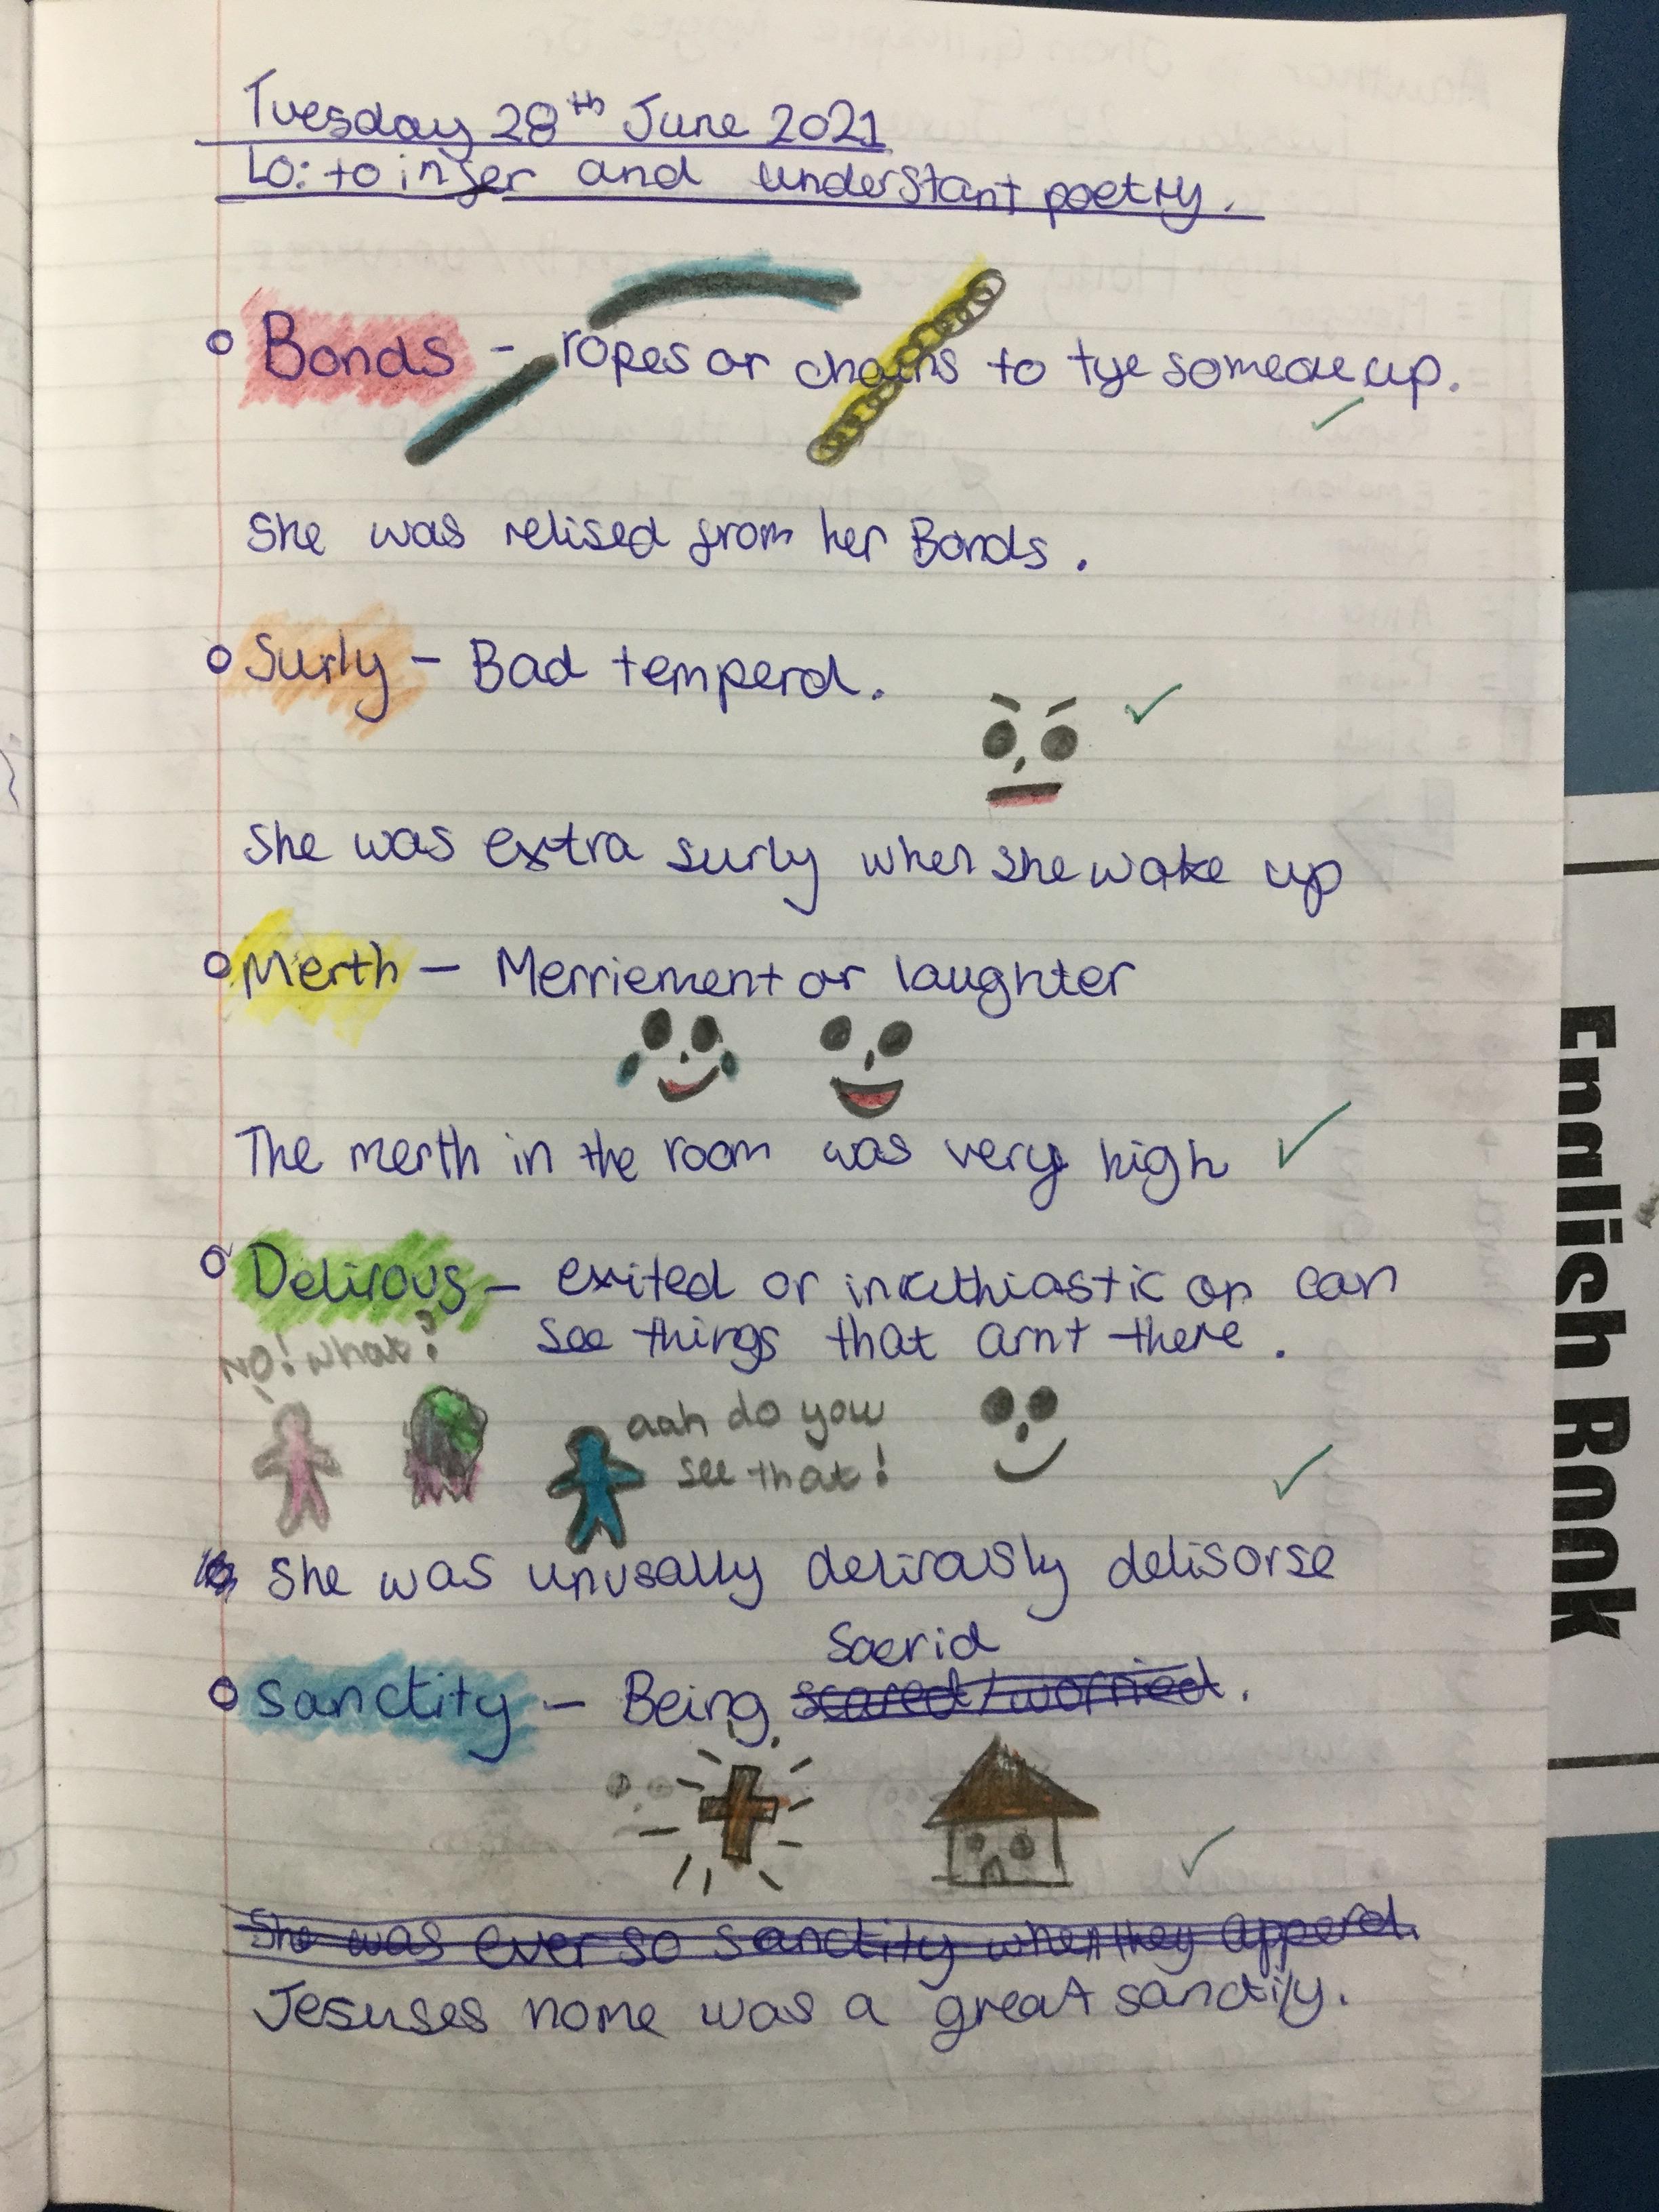 Tuesday 28th June 2021
LO: to infer and understant poetry.
Bonds - ropes or chains to tye someone up.
She was relised from her Bonds.
Surly - Bad temperd.
She was extra surly when she wake up
Merth - Merriement or laughter
The merth in the room was very high
Delirous - exited or inthiastic or can
see things that arnt there.
no! what?
aah do you
see that!
She was unusally delirasly delisorse
Sacrid
Sanctity - Being scared/worried.
She was ever so sanctity when they apperd.
Jesuses name was a great sanctity.
English Book